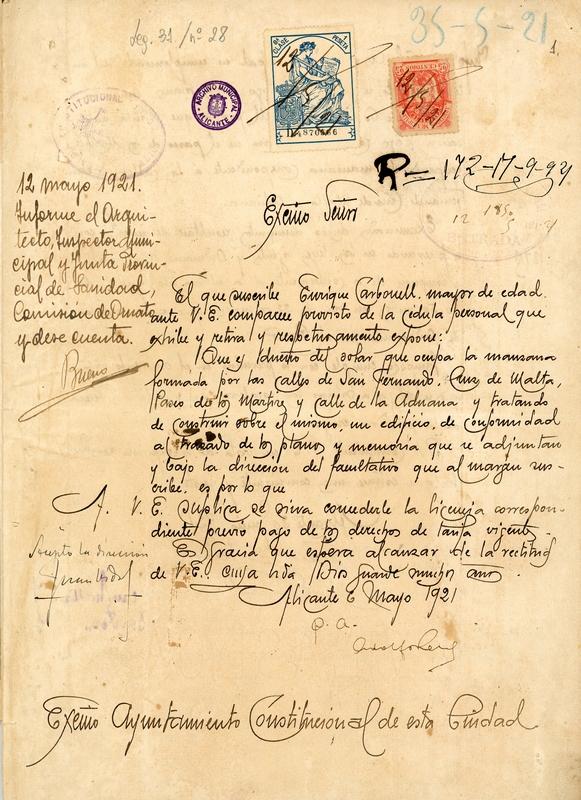 Leg. 31 / nº 28
35-5-21
1.
8ª CLASE 1 PESETA
ARCHIVO MUNICIPAL
ALICANTE
R = 172-17-9-921
12 mayo 1921.
Informe el Arqui-
tecto, Inspector Muni-
cipal y Junta Provin-
cial de Sanidad,
Comisión de Ornato
y dese cuenta.
Bueno
Exćmo Señor
El que suscribe Enrique Carbonell, mayor de edad
ante V. E. comparece provisto de la cédula personal que
exhibe y retira y respetuosamente expone:
Que es dueño del solar que ocupa la manzana
formada por las calles de San Fernando, Cruz de Malta,
Paseo de los Mártires y calle de la Aduana y tratando
de construir sobre el mismo, un edificio, de conformidad
al trazado de los planos y memoria que se adjuntan
y bajo la dirección del facultativo que al margen sus-
cribe, es por lo que
A. V. E. suplica se sirva concederle la licencia correspon-
diente, previo pago de los derechos de tarifa vigente,
Es gracia que espera alcanzar de la rectitud
de V. E. cuya vida Dios guarde muchos años.
Alicante 6 Mayo 1921
P. A.
Acepto la dirección
Juan Vidal
Exćmo Ayuntamiento Constitucional de esta Ciudad